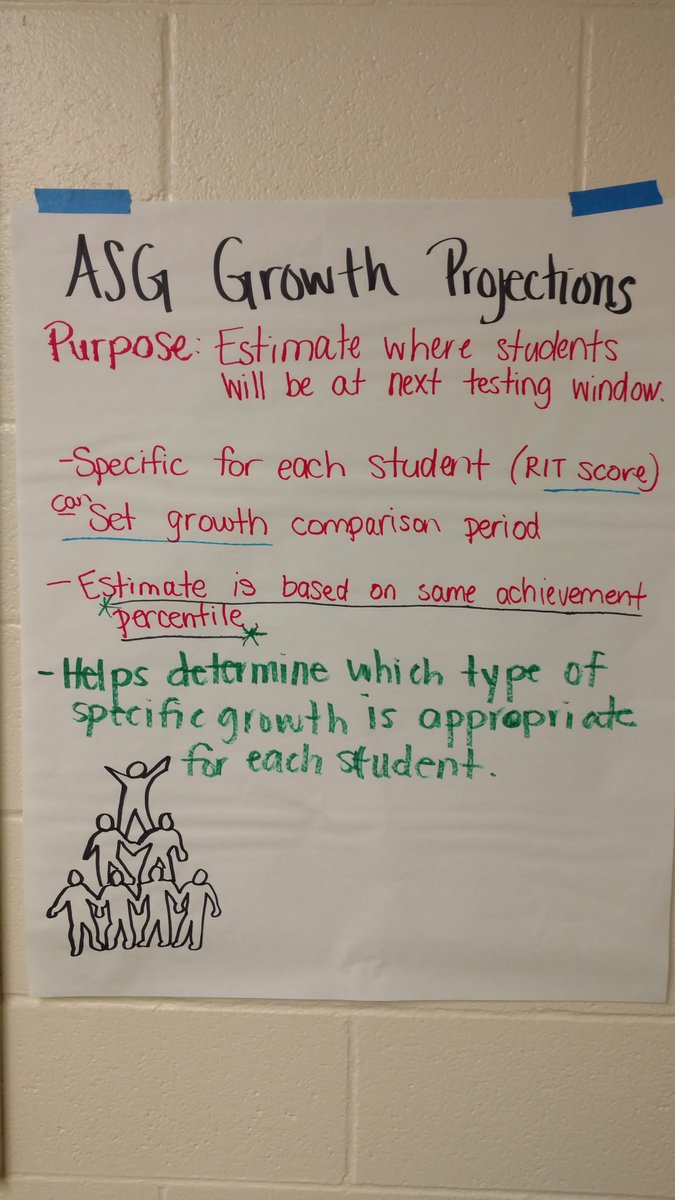 ASG Growth Projections
Purpose: Estimate where students
will be at next testing window.
-Specific for each student (RIT score)
can Set growth comparison period
- Estimate is based on same achievement
*percentile*
- Helps determine which type of
specific growth is appropriate
for each student.